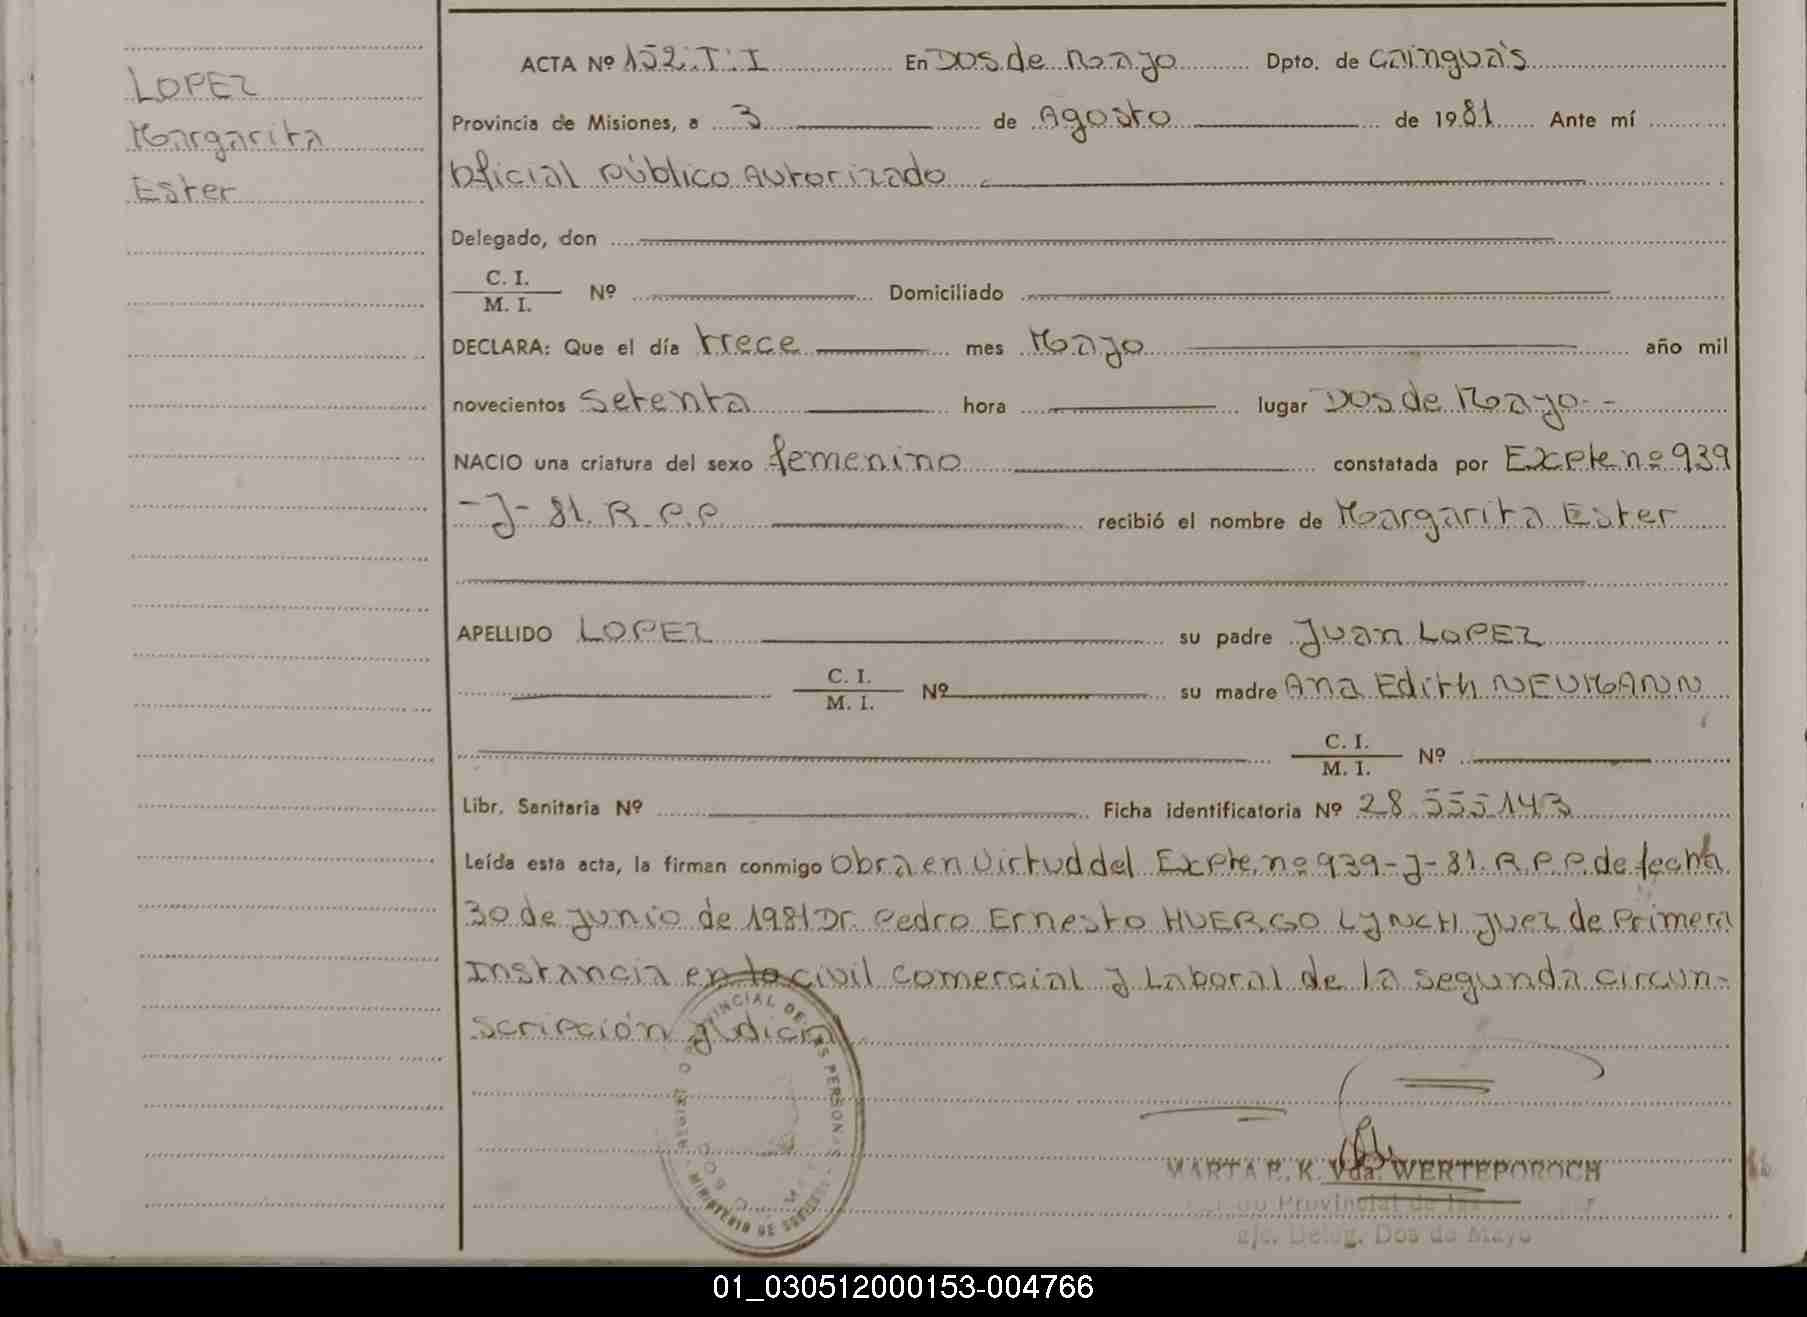 LOPEZ
Margarita
Ester
ACTA Nº 152.T.I En Dos de Mayo Dpto. de Cainguás
Provincia de Misiones, a 3 de Agosto de 1981 Ante mí
Oficial Público Autorizado
Delegado, don
C. I.
M. I. Nº Domiciliado
DECLARA: Que el día trece mes Mayo año mil
novecientos setenta hora lugar Dos de Mayo--
NACIO una criatura del sexo femenino constatada por Expte. nº 939
-J-81. R.P.P. recibió el nombre de Margarita Ester
APELLIDO LOPEZ su padre Juan LOPEZ
C. I.
M. I. Nº su madre Ana Edith NEUMANN
C. I.
M. I. Nº
Libr. Sanitaria Nº Ficha identificatoria Nº 28.555.143
Leída esta acta, la firman conmigo Obra en Virtud del Expte. nº 939-J-81. R.P.P. de fecha
30 de junio de 1981 Dr. Pedro Ernesto HUERGO LYNCH juez de Primera
Instancia en lo civil comercial y Laboral de la segunda circun-
scripción judicial
VINCIAL DE LAS PERSONAS
MINISTERIO DE
MARTA E. K. Vda. WERTEPOROCH
Provincial de las
a/c. Deleg. Dos de Mayo
01_030512000153-004766